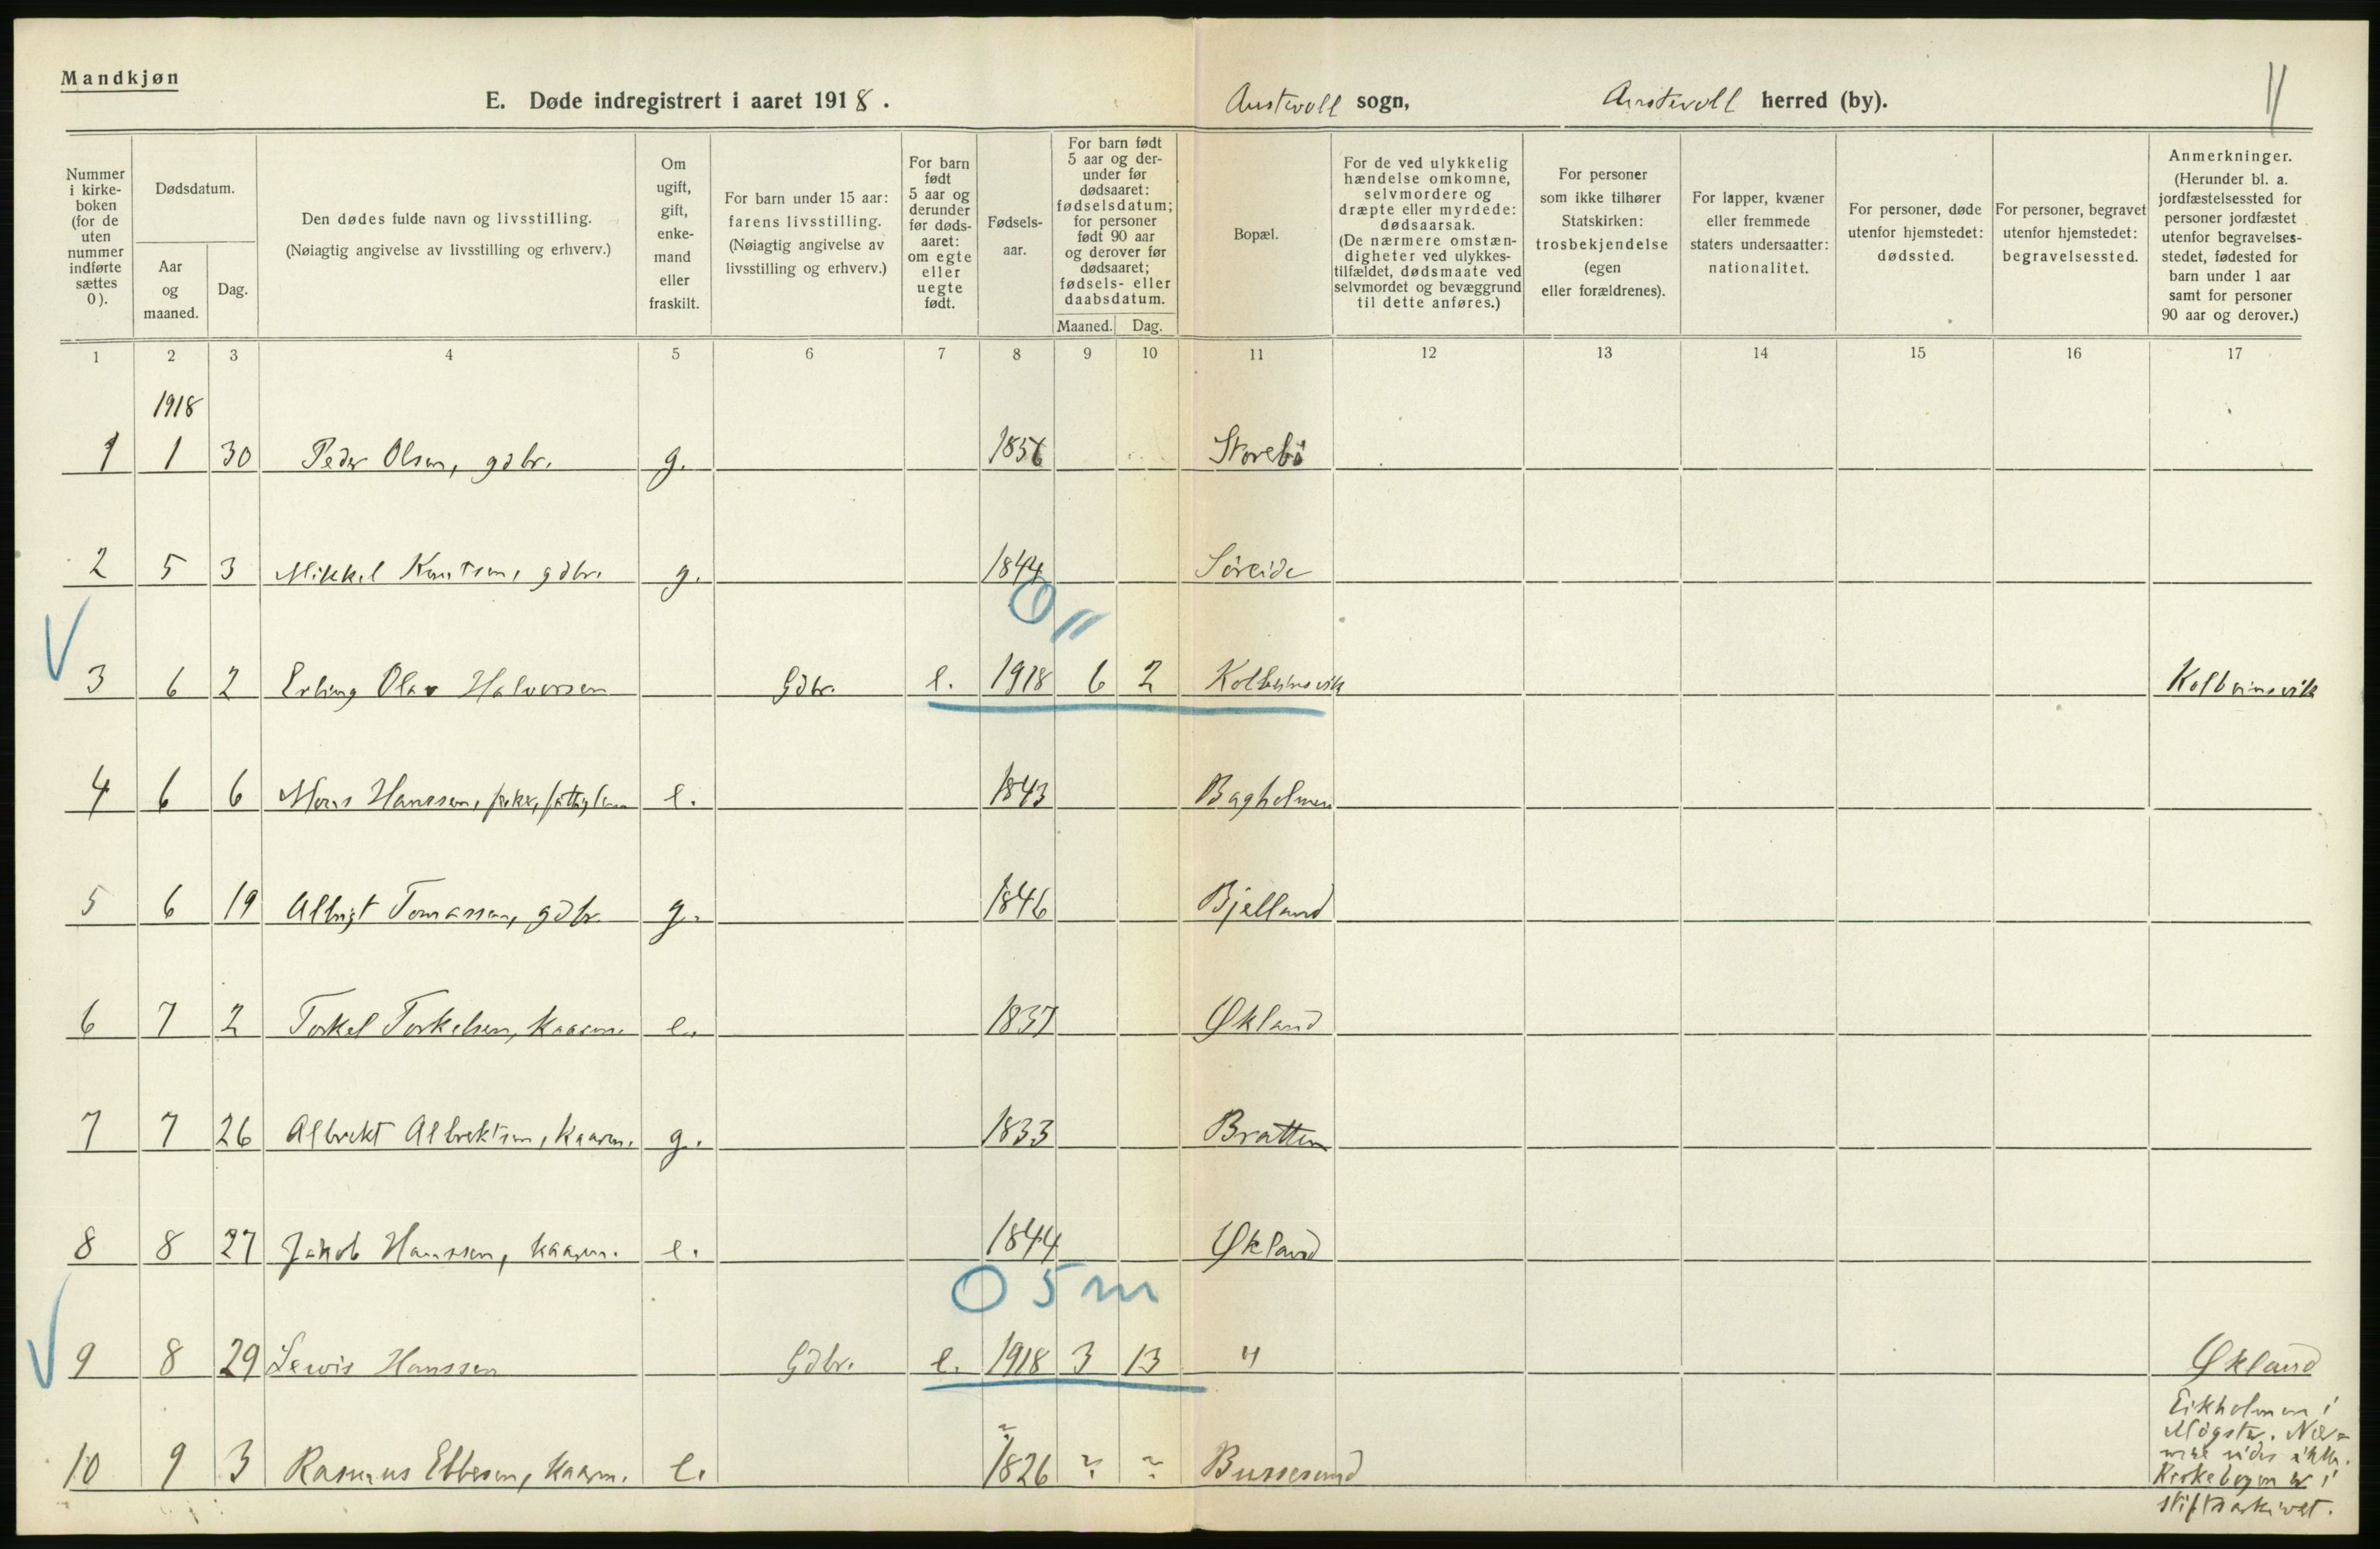 Mandkjøn
E. Døde indregistrert i aaret 1918. Austevoll sogn, Austevoll herred (by). 11
Nummer i kirkeboken (for de uten nummer indførte sættes 0).
Dødsdatum.
Aar og maaned.
Dag.
Den dødes fulde navn og livsstilling.
(Nøiagtig angivelse av livsstilling og erhverv.)
Om ugift, gift, enkemand eller fraskilt.
For barn under 15 aar: farens livsstilling.
(Nøiagtig angivelse av livsstilling og erhverv.)
For barn født 5 aar og derunder før dødsaaret: om egte eller uegte født.
Fødselsaar.
For barn født 5 aar og derunder før dødsaaret: fødselsdatum; for personer født 90 aar og derover før dødsaaret; fødsels- eller daabsdatum.
Maaned. Dag.
Bopæl.
For de ved ulykkelig hændelse omkomne, selvmordere og dræpte eller myrdede: dødsaarsak. (De nærmere omstændigheter ved ulykkestilfældet, dødsmaate ved selvmordet og bevæggrund til dette anføres.)
For personer som ikke tilhører Statskirken: trosbekjendelse (egen eller forældrenes).
For lapper, kvæner eller fremmede staters undersaatter: nationalitet.
For personer, døde utenfor hjemstedet: dødssted.
For personer, begravet utenfor hjemstedet: begravelsessted.
Anmerkninger. (Herunder bl. a. jordfæstelsessted for personer jordfæstet utenfor begravelsesstedet, fødested for barn under 1 aar samt for personer 90 aar og derover.)
1 2 3 4 5 6 7 8 9 10 11 12 13 14 15 16 17
1918
1 1 30 Peder Olsen, gdbr. g. 1856 Storebø
2 5 3 Mikkel Knutsen, gdbr. g. 1844 Søreide
0 11
3 6 2 Erling Olav Halvorsen Gdbr. e. 1918 6 2 Kolbeinsvik Kolbeinsvik
4 6 6 Mons Hanssen, e. 1843 Bagholmen
5 6 19 Albrigt Tomassen, gdbr. g. 1846 Bjelland
6 7 2 Torkel Torkelsen, kaarm. e. 1837 Økland
7 7 26 Albrekt Albrektsen, kaarm. g. 1833 Bratten
8 8 27 Jakob Hanssen, kaarm. e. 1844 Økland
0 5 m
9 8 29 Lewis Hanssen Gdbr. e. 1918 3 13 " Økland
10 9 3 Rasmus Ebbesen, kaarm. e. ? 1826 ? ? Bussesund Eikholmen i
Møgster. Nær-
mere vides ikke.
Kirkebogen er i
stiftsarkivet.